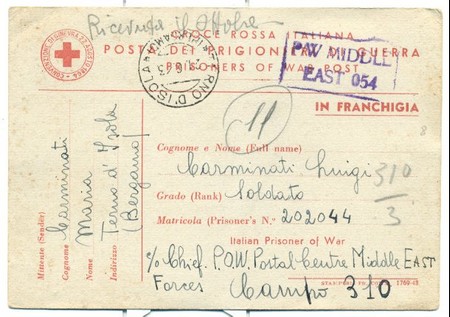 Ricevuta il Ottobre
CROCE ROSSA ITALIANA
POSTA DEI PRIGIONIERI DI GUERRA
PRISONERS OF WAR POST
CONVENZIONE DI GINEVRA 22 AGOSTO 1864
TERNO D'ISOLA
P/W MIDDLE
EAST 054
IN FRANCHIGIA
11
8
Cognome e Nome (Full name)
Carminati Luigi
310
3
Grado (Rank) Soldato
Matricola (Prisoner's N.° 202044
Italian Prisoner of War
c/o Chief. P.O.W. Postal Centre Middle EAST
Forces Campo 310
Mittente (Sender)
Cognome Carminati
Nome Maria
Indirizzo Terno d'Isola
(Bergamo)